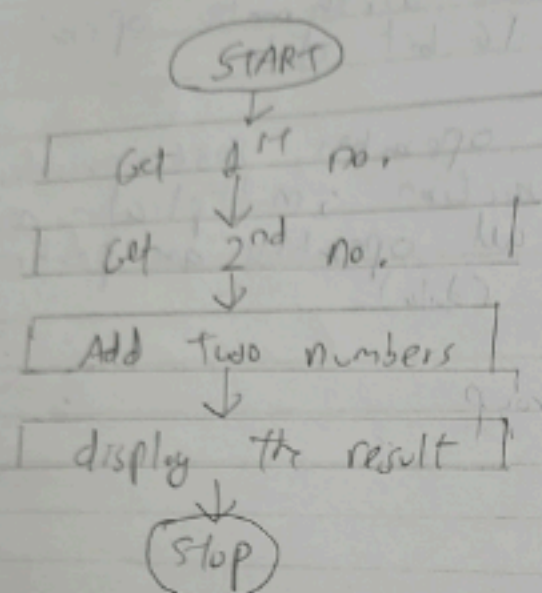 START
Get 1st no.
Get 2nd no.
Add two numbers
display the result
Stop